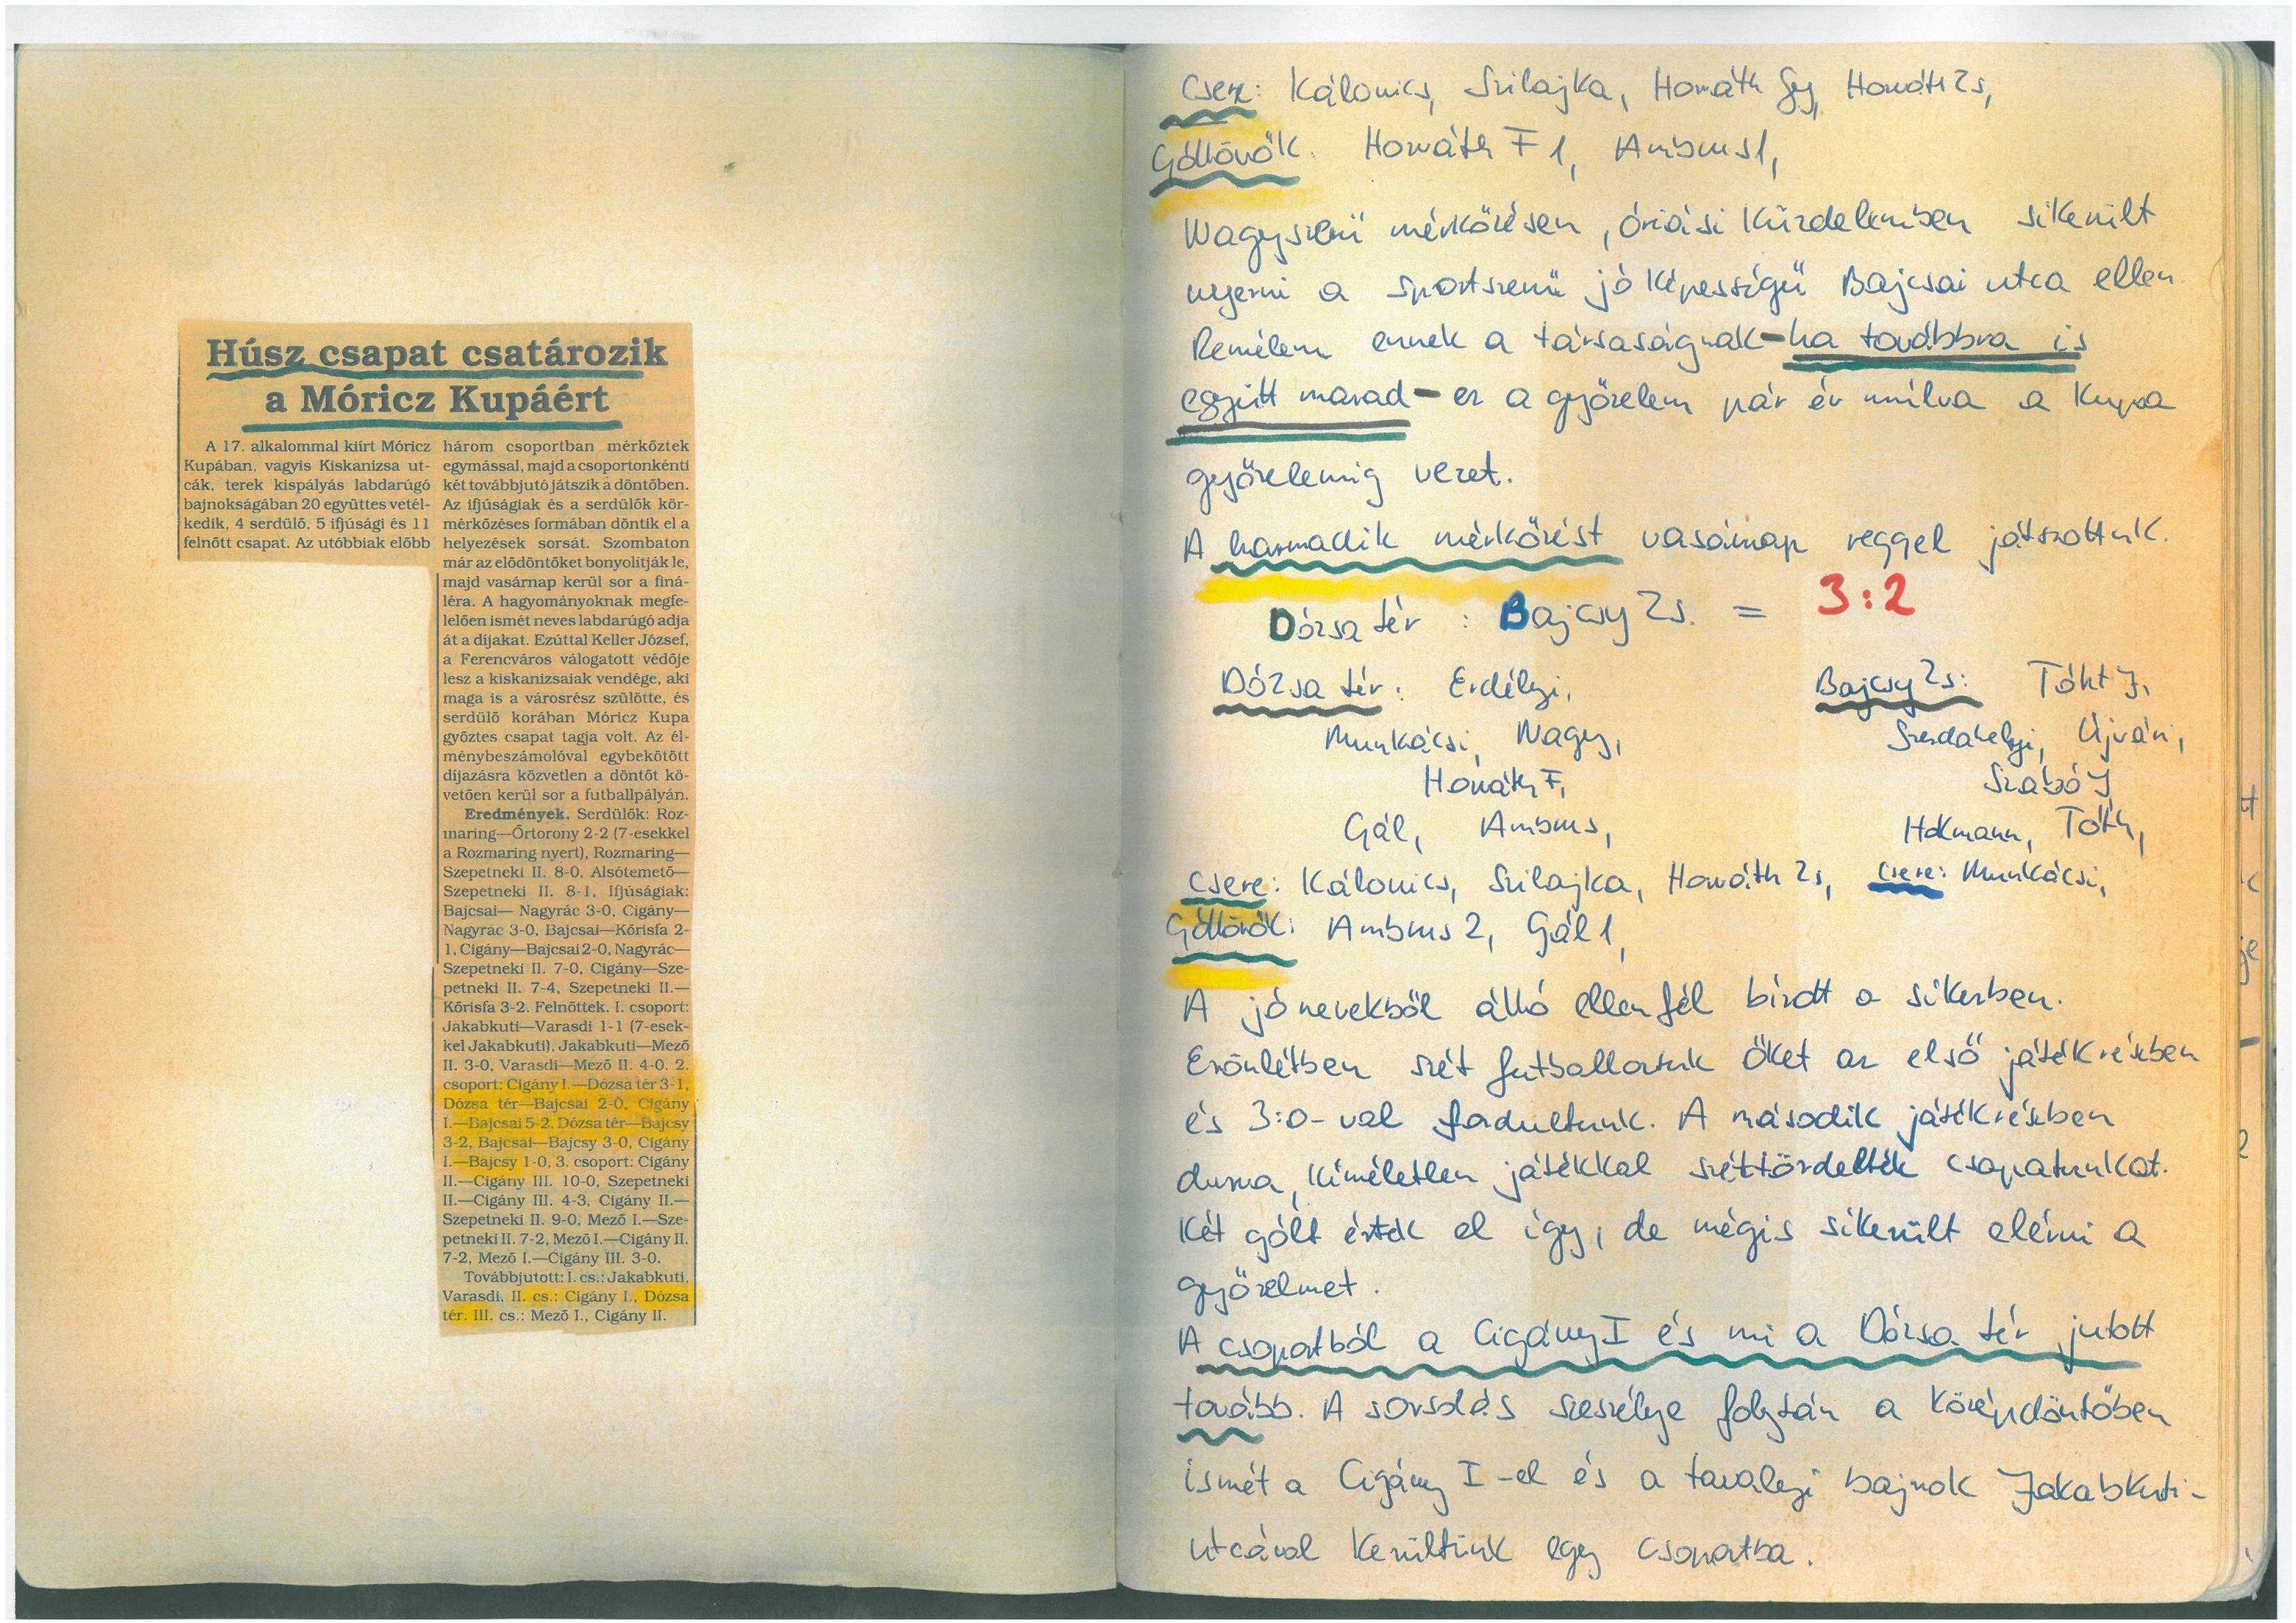 Húsz csapat csatározik
a Móricz Kupáért
A 17. alkalommal kiírt Móricz
Kupában, vagyis Kiskanizsa ut-
cák, terek kispályás labdarúgó
bajnokságában 20 együttes vetél-
kedik, 4 serdülő, 5 ifjúsági és 11
felnőtt csapat. Az utóbbiak előbb
három csoportban mérkőztek
egymással, majd a csoportonkénti
két továbbjutó játszik a döntőben.
Az ifjúságiak és a serdülők kör-
mérkőzéses formában döntik el a
helyezések sorsát. Szombaton
már az elődöntőket bonyolítják le,
majd vasárnap kerül sor a finá-
léra. A hagyományoknak megfe-
lelően ismét neves labdarúgó adja
át a díjakat. Ezúttal Keller József,
a Ferencváros válogatott védője
lesz a kiskanizsaiak vendége, aki
maga is a városrész szülötte, és
serdülő korában Móricz Kupa
győztes csapat tagja volt. Az él-
ménybeszámolóval egybekötött
díjazásra közvetlen a döntőt kö-
vetően kerül sor a futballpályán.
Eredmények. Serdülők: Roz-
maring—Őrtorony 2-2 (7-esekkel
a Rozmaring nyert), Rozmaring—
Szepetneki II. 8-0, Alsótemető—
Szepetneki II. 8-1, Ifjúságiak:
Bajcsai— Nagyrác 3-0, Cigány—
Nagyrác 3-0, Bajcsai—Kőrisfa 2-
1, Cigány—Bajcsai 2-0, Nagyrác—
Szepetneki II. 7-0, Cigány—Sze-
petneki II. 7-4, Szepetneki II.—
Kőrisfa 3-2. Felnőttek. I. csoport:
Jakabkuti—Varasdi 1-1 (7-esek-
kel Jakabkuti), Jakabkuti—Mező
II. 3-0, Varasdi—Mező II. 4-0. 2.
csoport: Cigány I.—Dózsa tér 3-1,
Dózsa tér—Bajcsai 2-0, Cigány
I.—Bajcsai 5-2, Dózsa tér—Bajcsy
3-2, Bajcsai—Bajcsy 3-0, Cigány
I.—Bajcsy 1-0, 3. csoport: Cigány
II.—Cigány III. 10-0, Szepetneki
II.—Cigány III. 4-3, Cigány II.—
Szepetneki II. 9-0, Mező I.—Sze-
petneki II. 7-2, Mező I.—Cigány II.
7-2, Mező I.—Cigány III. 3-0.
Továbbjutott: I. cs.: Jakabkuti,
Varasdi. II. cs.: Cigány I., Dózsa
tér. III. cs.: Mező I., Cigány II.
Csere: Kálovics, Szilajka, Horváth Gy, Horváth Zs,
Góllövők: Horváth F 1, Ambrus 1,
Nagyszerű mérkőzésen, óriási küzdelemben sikerült
nyerni a sportszerű jó képességű Bajcsai utca ellen.
Remélem ennek a társaságnak - ha továbbra is
együtt marad - ez a győzelem pár év múlva a Kupa
győzelemig vezet.
A harmadik mérkőzést vasárnap reggel játszottuk.
Dózsa tér : Bajcsy Zs. = 3:2
Dózsa tér: Erdélyi,
Munkácsi, Nagy,
Horváth F,
Gál, Ambrus,
Bajcsy Zs: Tóht J,
Szerdahelyi, Újvári,
Szabó J,
Hokmann, Tóth,
Csere: Kálovics, Szilajka, Horváth Zs, Csere: Munkácsi,
Góllövők: Ambrus 2, Gál 1,
A jó nevekből álló ellenfél bízott a sikerben.
Erőnlétben szét futballoztuk őket az első játékrészben
és 3:0-val fordultunk. A második játékrészben
durva, kíméletlen játékkal széttördelték csapatunkat.
Két gólt értek el így, de mégis sikerült elérni a
győzelmet.
A csoportból a Cigány I és mi a Dózsa tér jutott
tovább. A sorsolás szeszélye folytán a középdöntőben
ismét a Cigány I-el és a tavalyi bajnok Jakabkuti-
utcával kerültünk egy csoportba.